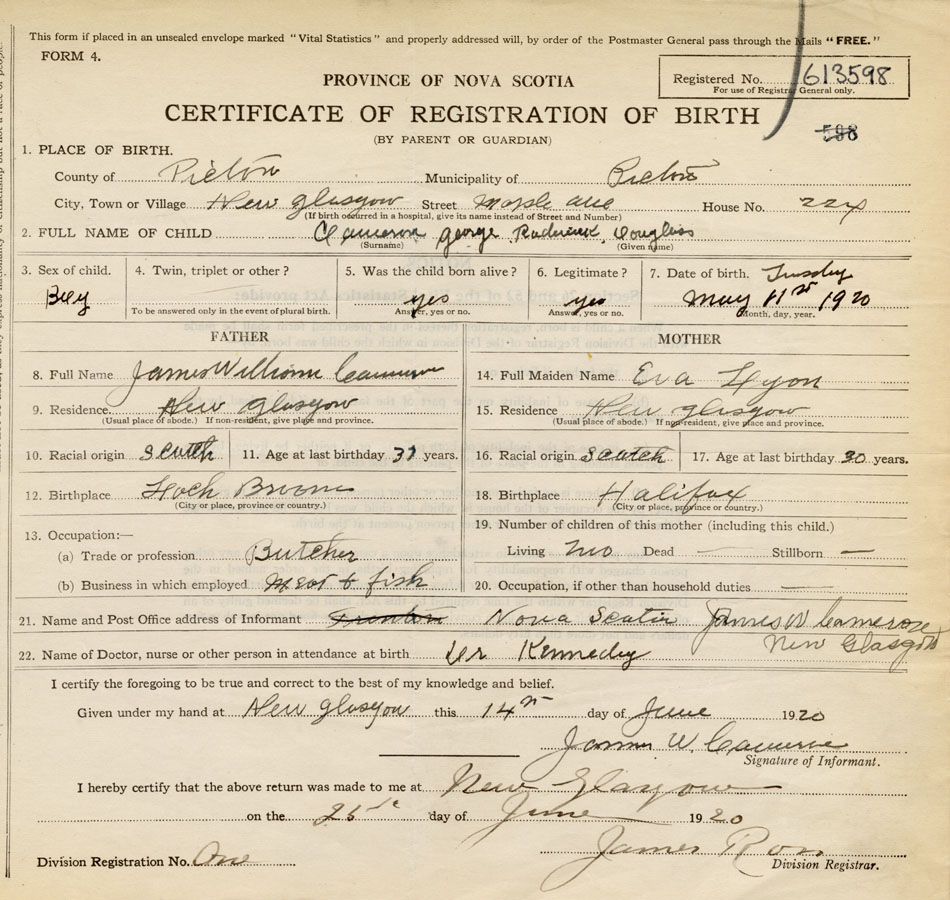 This form if placed in an unsealed envelope marked "Vital Statistics" and properly addressed will, by order of the Postmaster General pass through the Mails "FREE."
FORM 4.
PROVINCE OF NOVA SCOTIA
Registered No. 613598
For use of Registrar General only.
CERTIFICATE OF REGISTRATION OF BIRTH
598
(BY PARENT OR GUARDIAN)
1. PLACE OF BIRTH.
County of Pictou Municipality of Pictou
City, Town or Village New glasgow Street Maple ave House No. 224
(If birth occurred in a hospital, give its name instead of Street and Number)
2. FULL NAME OF CHILD Cameron george Roderick Douglass
(Surname) (Given name)
3. Sex of child. 4. Twin, triplet or other? 5. Was the child born alive? 6. Legitimate? 7. Date of birth. Tuesday
Boy yes yes May 11st 1920
To be answered only in the event of plural birth. Answer, yes or no. Answer, yes or no. Month, day, year.
FATHER MOTHER
8. Full Name James William Cameron 14. Full Maiden Name Eva Lyon
9. Residence. New glasgow 15. Residence New glasgow
(Usual place of abode.) If non-resident, give place and province. (Usual place of abode.) If non-resident, give place and province.
10. Racial origin Scutch 11. Age at last birthday 31 years. 16. Racial origin Scutch 17. Age at last birthday 30 years.
12. Birthplace Loch Broom 18. Birthplace Halifax
(City or place, province or country.) (City or place, province or country.)
13. Occupation:— 19. Number of children of this mother (including this child.)
(a) Trade or profession Butcher Living Two Dead — Stillborn —
(b) Business in which employed Meat & fish 20. Occupation, if other than household duties
21. Name and Post Office address of Informant Trenton Nova Scotia James W Cameron
New Glasgow
22. Name of Doctor, nurse or other person in attendance at birth Dr Kennedy
I certify the foregoing to be true and correct to the best of my knowledge and belief.
Given under my hand at New glasgow this 14th day of June 1920
James W. Cameron
Signature of Informant.
I hereby certify that the above return was made to me at New Glasgow
on the 25th day of June 1920
James Ross
Division Registration No. One Division Registrar.